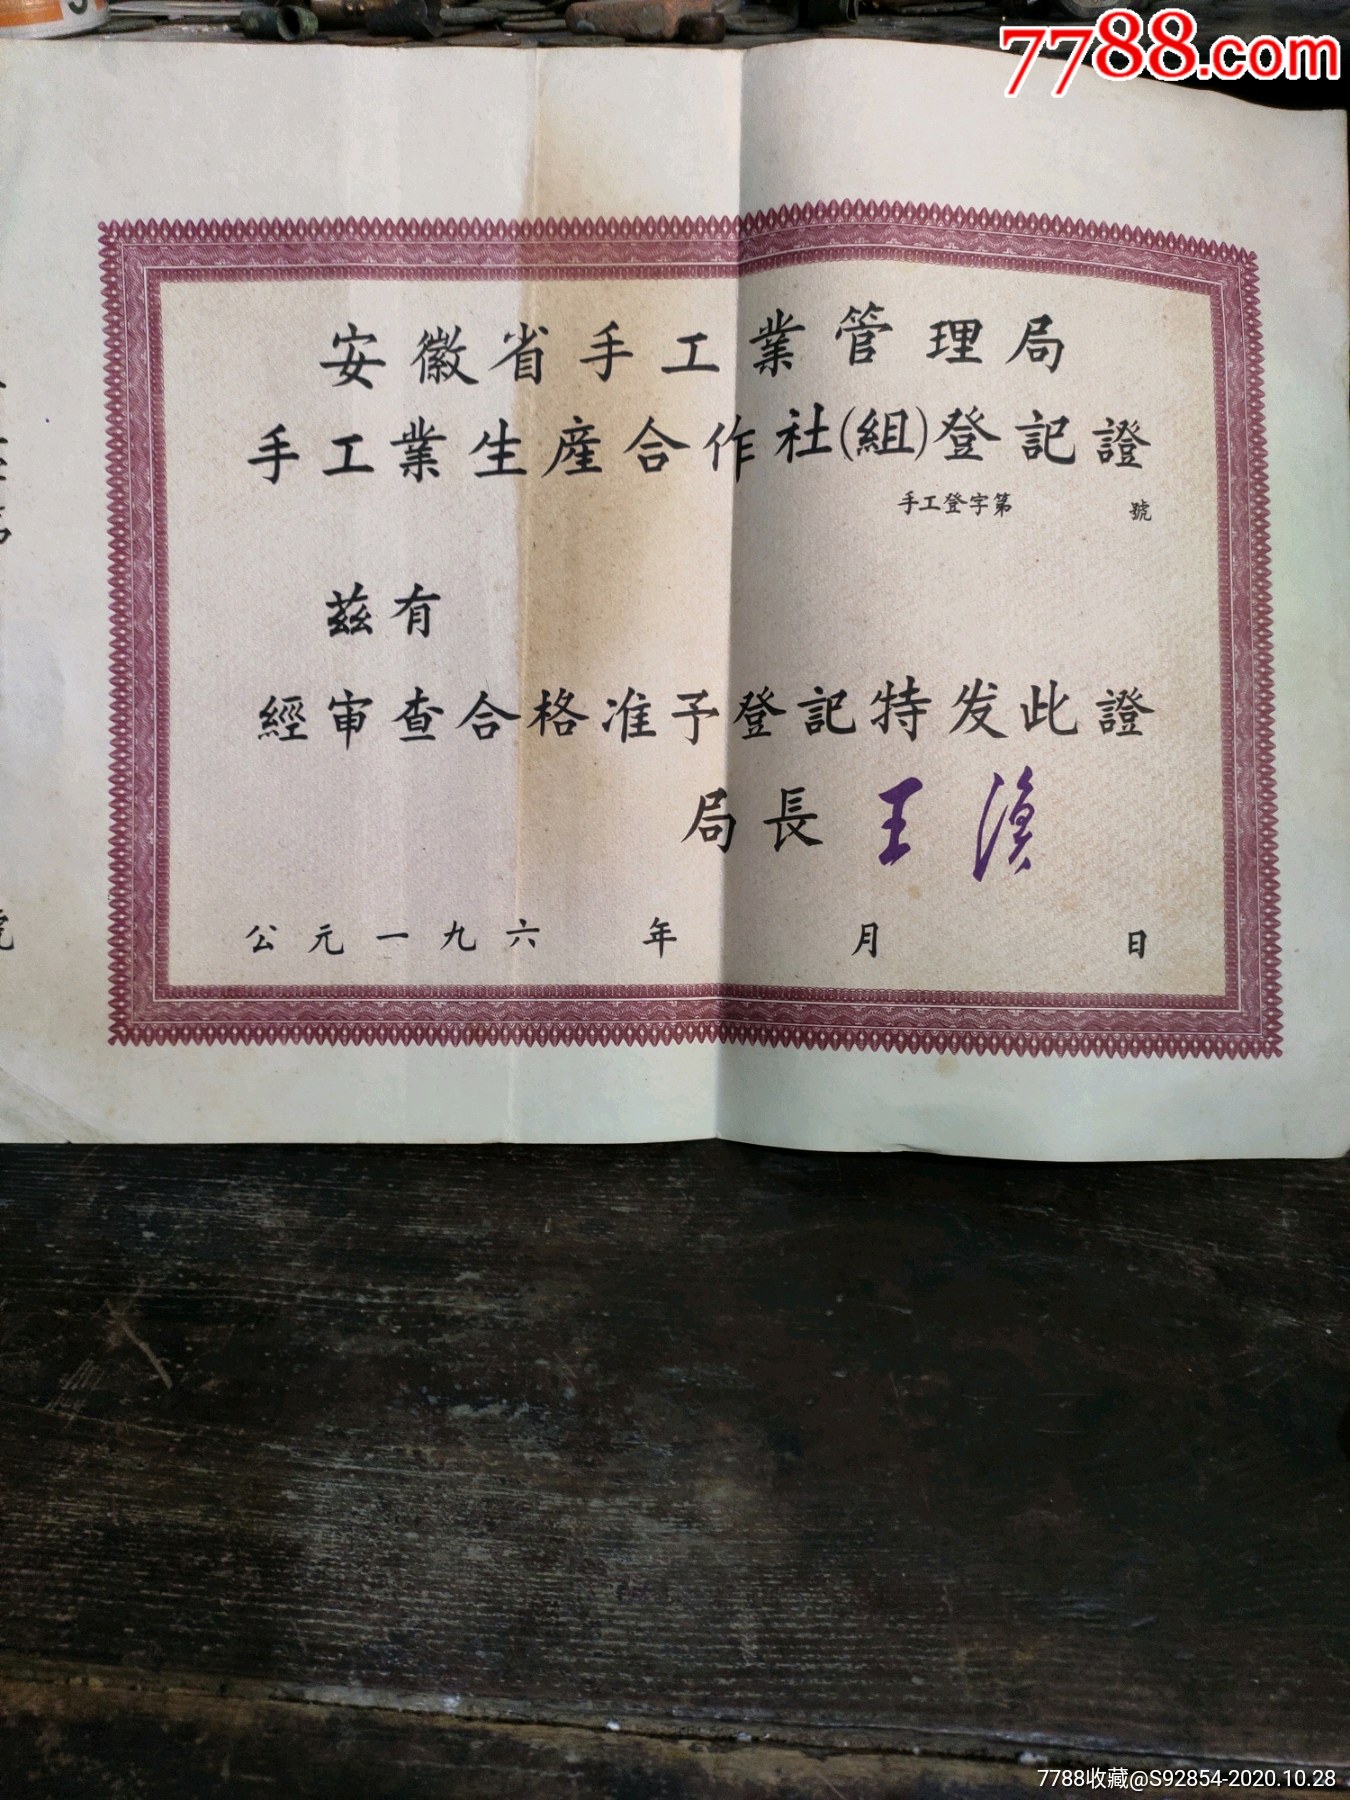 7788.com
安徽省手工業管理局
手工業生産合作社(組)登記證
手工登字第 號
茲有
經審查合格准予登記特发此證
局長 王
公元一九六 年 月 日
7788收藏@S92854-2020.10.28